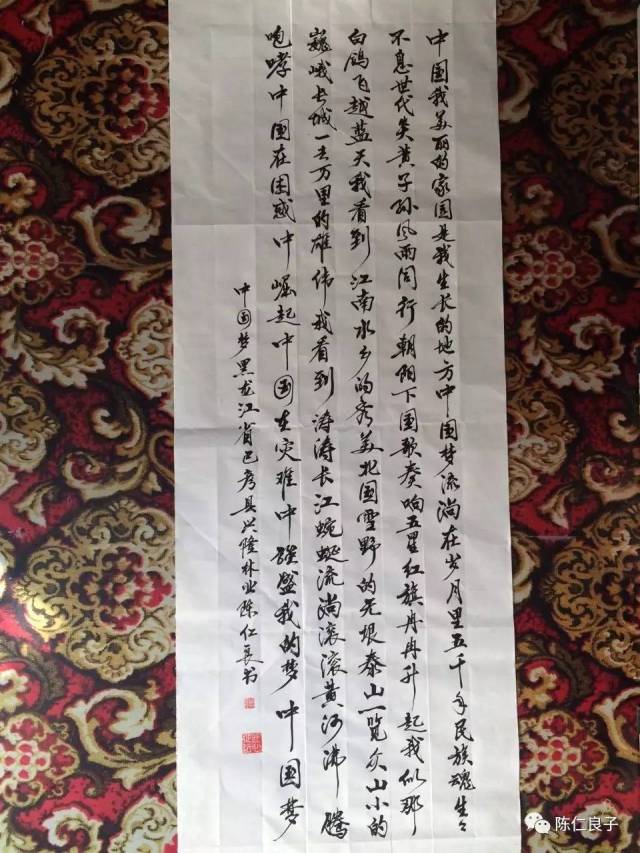 中国我美丽的家园是我生长的地方中国梦流淌在岁月里五千年民族魂生々
不息世代炎黄子孙风雨同行朝阳下国歌奏响五星红旗冉冉升起我似那
白鸽飞越蓝天我看到江南水乡的秀美北国雪野的无垠泰山一览众山小的
巍峨长城一去万里的雄伟我看到涛涛长江蜿蜒流淌滚滚黄河沸腾
咆哮中国在困惑中崛起中国在灾难中强盛我的梦中国梦
中国梦黑龙江省巴彦县兴隆林业陈仁良书
陈仁良子